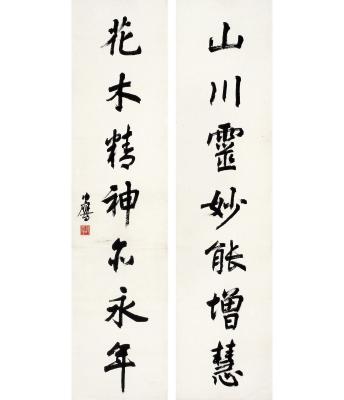 山川靈妙能增慧
花木精神亦永年
少鷹